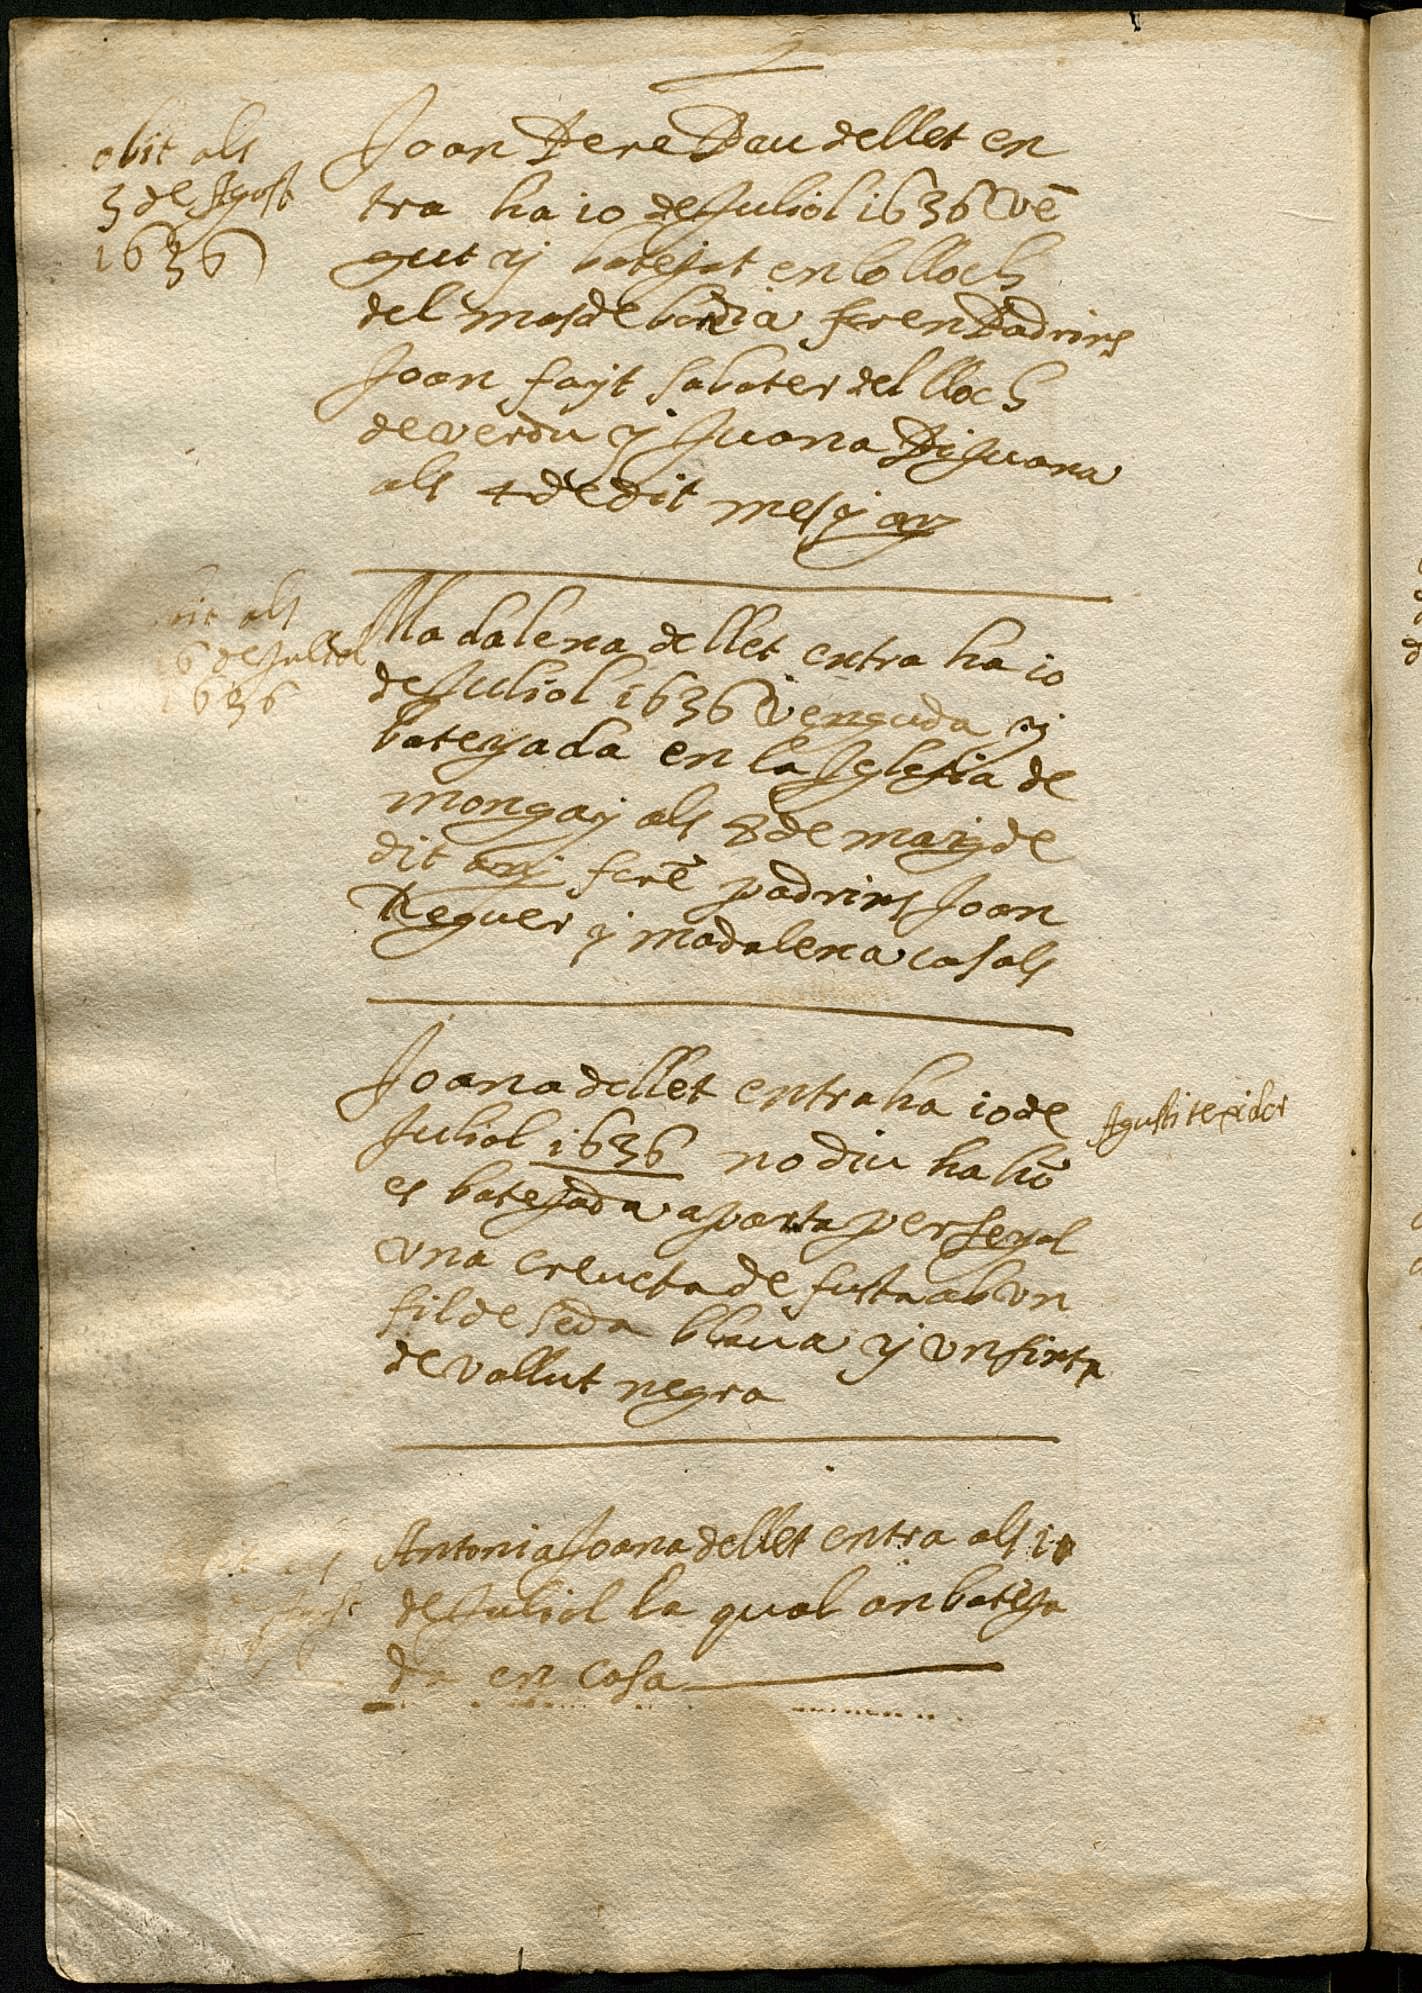 obit als
3 de Agost
1636
Joan Pere Pau de llet en
tra ha 10 de Juliol 1636 vē
gut y batejat en lo lloch
del mas de bondia foren Padrins
Joan fayt sabater del lloch
de verdu y Juana Dijuana
als 4 de dit mes y any
als
6 de Juliol
1636
Madalena de llet entra ha 10
de Juliol 1636 venguda y
bateyada en la Iglesia de
mongay als 8 de maig de
dit any forē padrins Joan
Reguer y madalena casals
Joana de llet entra ha 10 de
Juliol 1636 no diu ha hō
es batejada aporta per senyal
una creueta de fusta ab vn
fil de seda blaua y vn sinta
de vallut negra
Agusti texidor
Antonia Joana de llet entra als 10
de Juliol la qual an bateja
da en casa